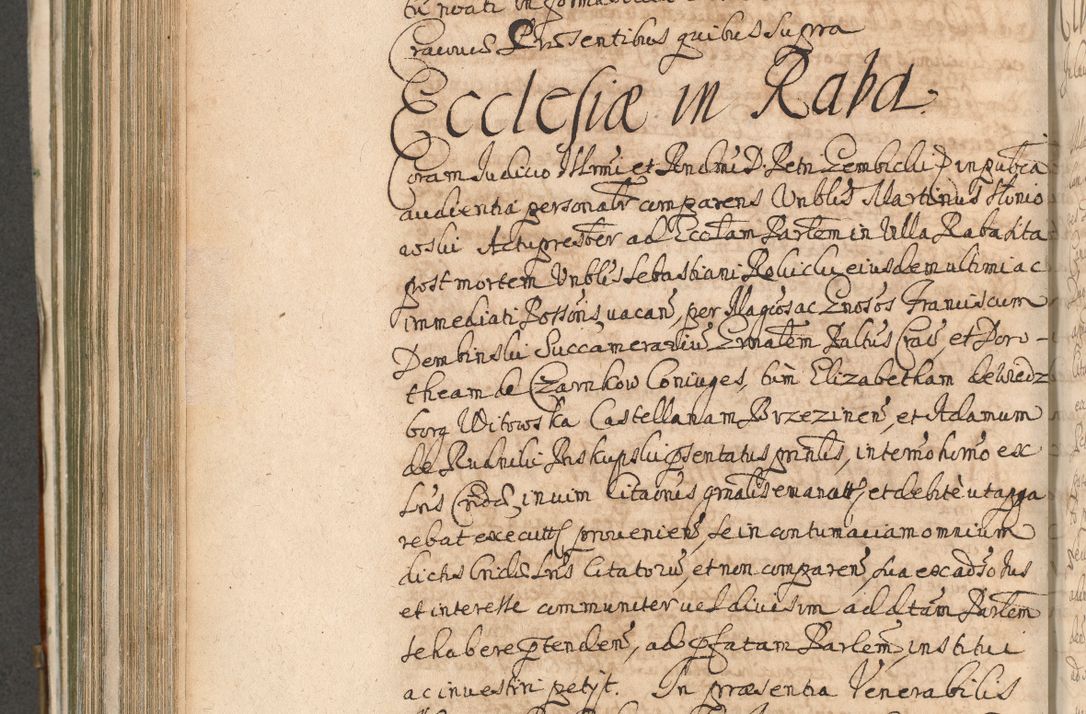 Cracoviæ Præsentibus quibus supra
Ecclesiæ in Raba.
Coram Judicio Illrmi et Rndmi D. Petri Gembicki in publica
audientia personalr comparens Vnblis Martinus Slonio
wski Actu presbter ad Ecctam Parlem in Villa Raba sita
post mortem Vnblis Sebastiani Rolicki eiusdem ultimi ac
immediati Possoris vacan, per Magcos ac Gnosos Franciscum
Dembinski Succamerarium Paltus Crac, et Doro-
theam de Czarnkow Coniuges, tum Elizabetham de Wiedz
borg Witowska Castellanam Brzezinen, et Adamum
de Rudniki Biskupski psentatus pntis, in termo hdierno ex
Lris Cridæ, in vim Citaonis gnalis emanatt, et debite ut appa
rebat executt, provenien, se in contumaciam omnium
dictis Crida Lris Citatoru, et non comparen, sua ex adso Ius
et interesse communiter vel divisim ad dtam Parlem
se habere ptenden, ad pfatam Parlem, institui
ac investiri petijt. In præsentia Venerabilis